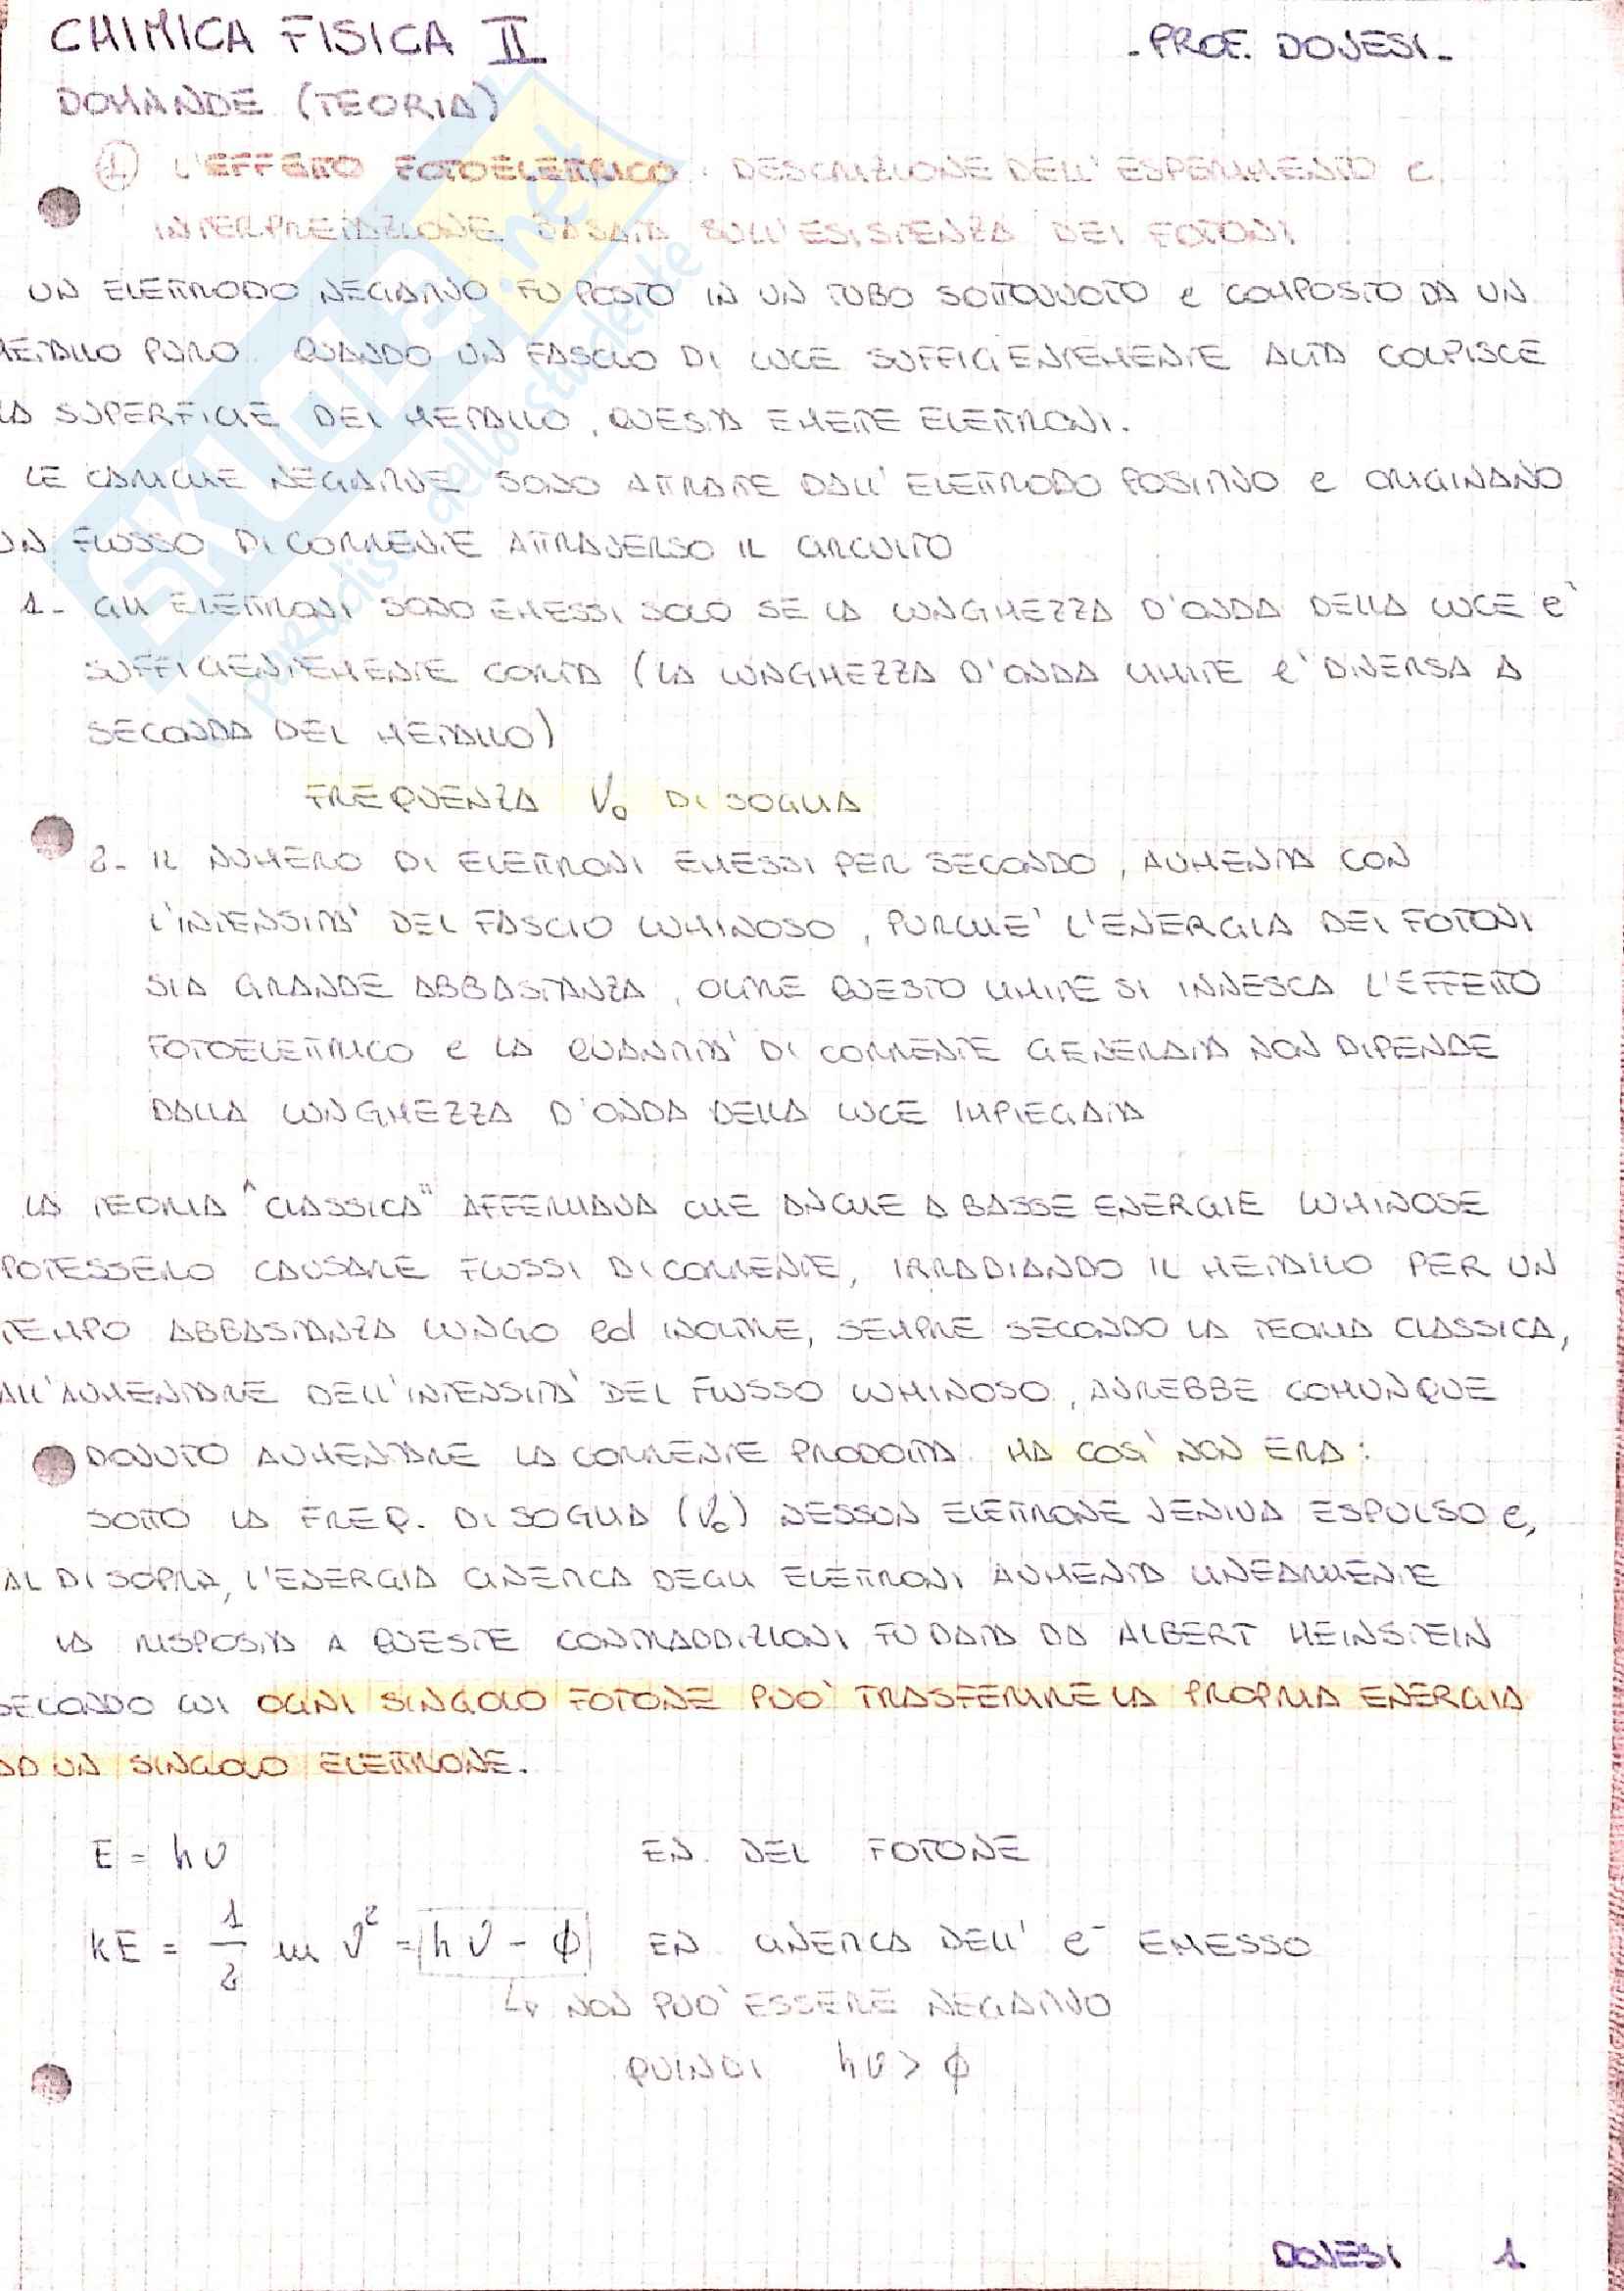 CHIMICA FISICA II
-PROF. DOVESI-
DOMANDE (TEORIA)
1 L'EFFETTO FOTOELETTRICO: DESCRIZIONE DELL'ESPERIMENTO e
INTERPRETAZIONE BASATA SULL'ESISTENZA DEI FOTONI
UN ELETTRODO NEGATIVO FU POSTO IN UN TUBO SOTTOVUOTO e COMPOSTO DA UN
METALLO PURO. QUANDO UN FASCIO DI LUCE SUFFICIENTEMENTE ALTA COLPISCE
LA SUPERFICIE DEL METALLO, QUESTA EMETTE ELETTRONI.
LE CARICHE NEGATIVE SONO ATTRATTE DALL'ELETTRODO POSITIVO e ORIGINANO
UN FLUSSO DI CORRENTE ATTRAVERSO IL CIRCUITO
1- GLI ELETTRONI SONO EMESSI SOLO SE LA LUNGHEZZA D'ONDA DELLA LUCE e'
SUFFICIENTEMENTE CORTA (LA LUNGHEZZA D'ONDA LIMITE e' DIVERSA A
SECONDA DEL METALLO)
FREQUENZA ν₀ DI SOGLIA
2- IL NUMERO DI ELETTRONI EMESSI PER SECONDO, AUMENTA CON
L'INTENSITA' DEL FASCIO LUMINOSO, PURCHE' L'ENERGIA DEI FOTONI
SIA GRANDE ABBASTANZA, OLTRE QUESTO LIMITE SI INNESCA L'EFFETTO
FOTOELETTRICO e LA QUANTITA' DI CORRENTE GENERATA NON DIPENDE
DALLA LUNGHEZZA D'ONDA DELLA LUCE IMPIEGATA
LA TEORIA "CLASSICA" AFFERMAVA CHE ANCHE A BASSE ENERGIE LUMINOSE
POTESSERO CAUSARE FLUSSI DI CORRENTE, IRRADIANDO IL METALLO PER UN
TEMPO ABBASTANZA LUNGO ed INOLTRE, SEMPRE SECONDO LA TEORIA CLASSICA,
ALL'AUMENTARE DELL'INTENSITA' DEL FLUSSO LUMINOSO, AVREBBE COMUNQUE
DOVUTO AUMENTARE LA CORRENTE PRODOTTA. MA COSI' NON ERA:
SOTTO LA FREQ. DI SOGLIA (ν₀) NESSUN ELETTRONE VENIVA ESPULSO e,
AL DI SOPRA, L'ENERGIA CINETICA DEGLI ELETTRONI AUMENTA LINEARMENTE
LA RISPOSTA A QUESTE CONTRADDIZIONI FU DATA DA ALBERT HEINSTEIN
SECONDO CUI OGNI SINGOLO FOTONE PUO' TRASFERIRE LA PROPRIA ENERGIA
AD UN SINGOLO ELETTRONE.
E = hν EN. DEL FOTONE
KE = 1/2 m v² = hν - φ EN. CINETICA DELL' e⁻ EMESSO
↳ NON PUO' ESSERE NEGATIVO
QUINDI hν > φ
DOVESI 1
SKUOLA.net
il paradiso dello studente